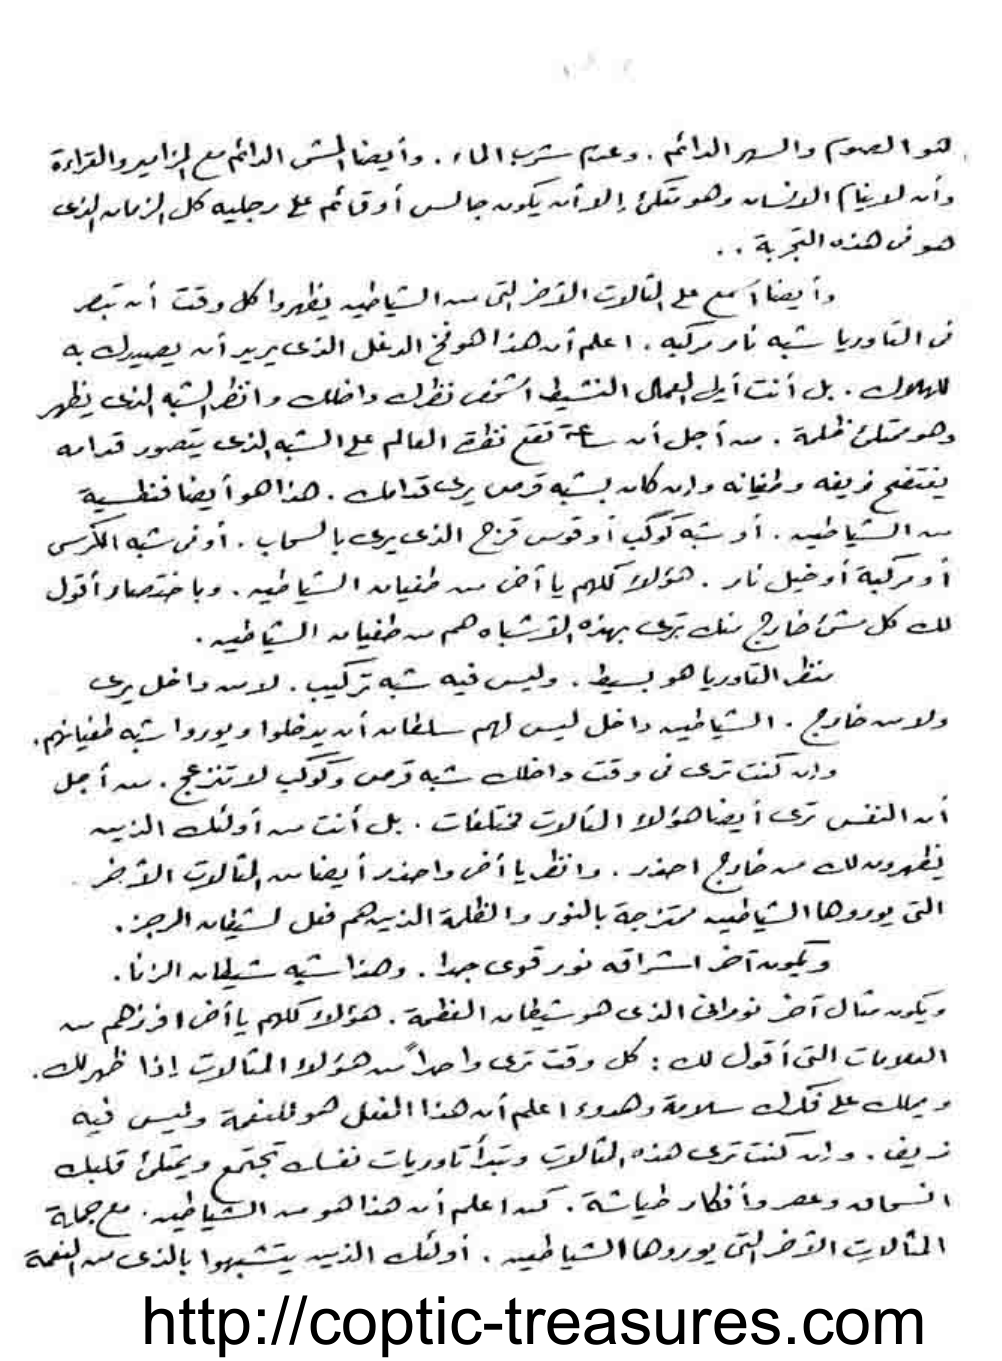 هو الصوم والسهر الدائم . وعدم شرب الماء . وأيضا المشى الدائم مع المزامير والقراءة
وأن لا ينام الانسان وهو متكئ إلا أن يكون جالس أو قائم على رجليه كل الزمان الذى
هو فى هذه التجربة . .
وأيضا اسمع على المثالات الأخر التى من الشياطين يظهروا كل وقت أن تبصر
فى التاوريا شبه نار مركبه . اعلم أن هذا هو فخ الدغل الذى يريد أن يصيدك به
للهلاك . بل أنت أيها العمال النشيط أشخص نظرك داخلك وانظر الشبه الذى يظهر
وهو ممتلئ ظلمة . من أجل أن ساعة تقع نظرة العالم على الشبه الذى يتصور قدامه
يفتضح زيفه وطغيانه وإن كان بشبه قرص يرى قدامك . هذا هو أيضا فنطسية
من الشياطين . أو شبه كوكب أو قوس قزح الذى يرى بالسحاب . أو فى شبه الكرسى
أو مركبة أو خيل نار . هؤلاء كلهم يا أخى من طغيان الشياطين . وباختصار أقول
لك كل شئ خارج منك ترى بهذه الأشباه هم من طغيان الشياطين .
منظر التاوريا هو بسيط . وليس فيه شبه تركيب . لا من داخل يرى
ولا من خارج . الشياطين داخل ليس لهم سلطان أن يدخلوا ويوروا شبه طغيانهم .
وإن كنت ترى فى وقت داخلك شبه قرص وكوكب لا تنزعج . من أجل
أن النفس ترى أيضا هؤلاء المثالات مختلفات . بل أنت من أولئك الذين
يظهرون لك من خارج احذر . وانظر يا أخى واحذر أيضا من المثالات الأخر
التى يوروها الشياطين ممتزجة بالنور والظلمة الذين هم فعل لشيطان الرجز .
ويكون آخر اشراقه نور قوى جدا . وهذا شبه شيطان الزنا .
ويكون مثال آخر نورانى الذى هو شيطان العظمة . هؤلاء كلهم يا أخى افرزهم من
العلامات التى أقول لك : كل وقت ترى واحداً من هؤلاء المثالات إذا ظهر لك .
ويملك على فكرك سلامة وهدوء اعلم أن هذا الفعل هو للنعمة وليس فيه
زيف . وإن كنت ترى هذه المثالات وتبدأ تاوريات نفسك تجتمع ويمتلئ قلبك
انسجان وعصر وأفكار طياشة . كن اعلم أن هذا هو من الشياطين . مع جملة
المثالات الأخر التى يوروها الشياطين . أولئك الذين يتشبهوا بالذى من النعمة
http://coptic-treasures.com